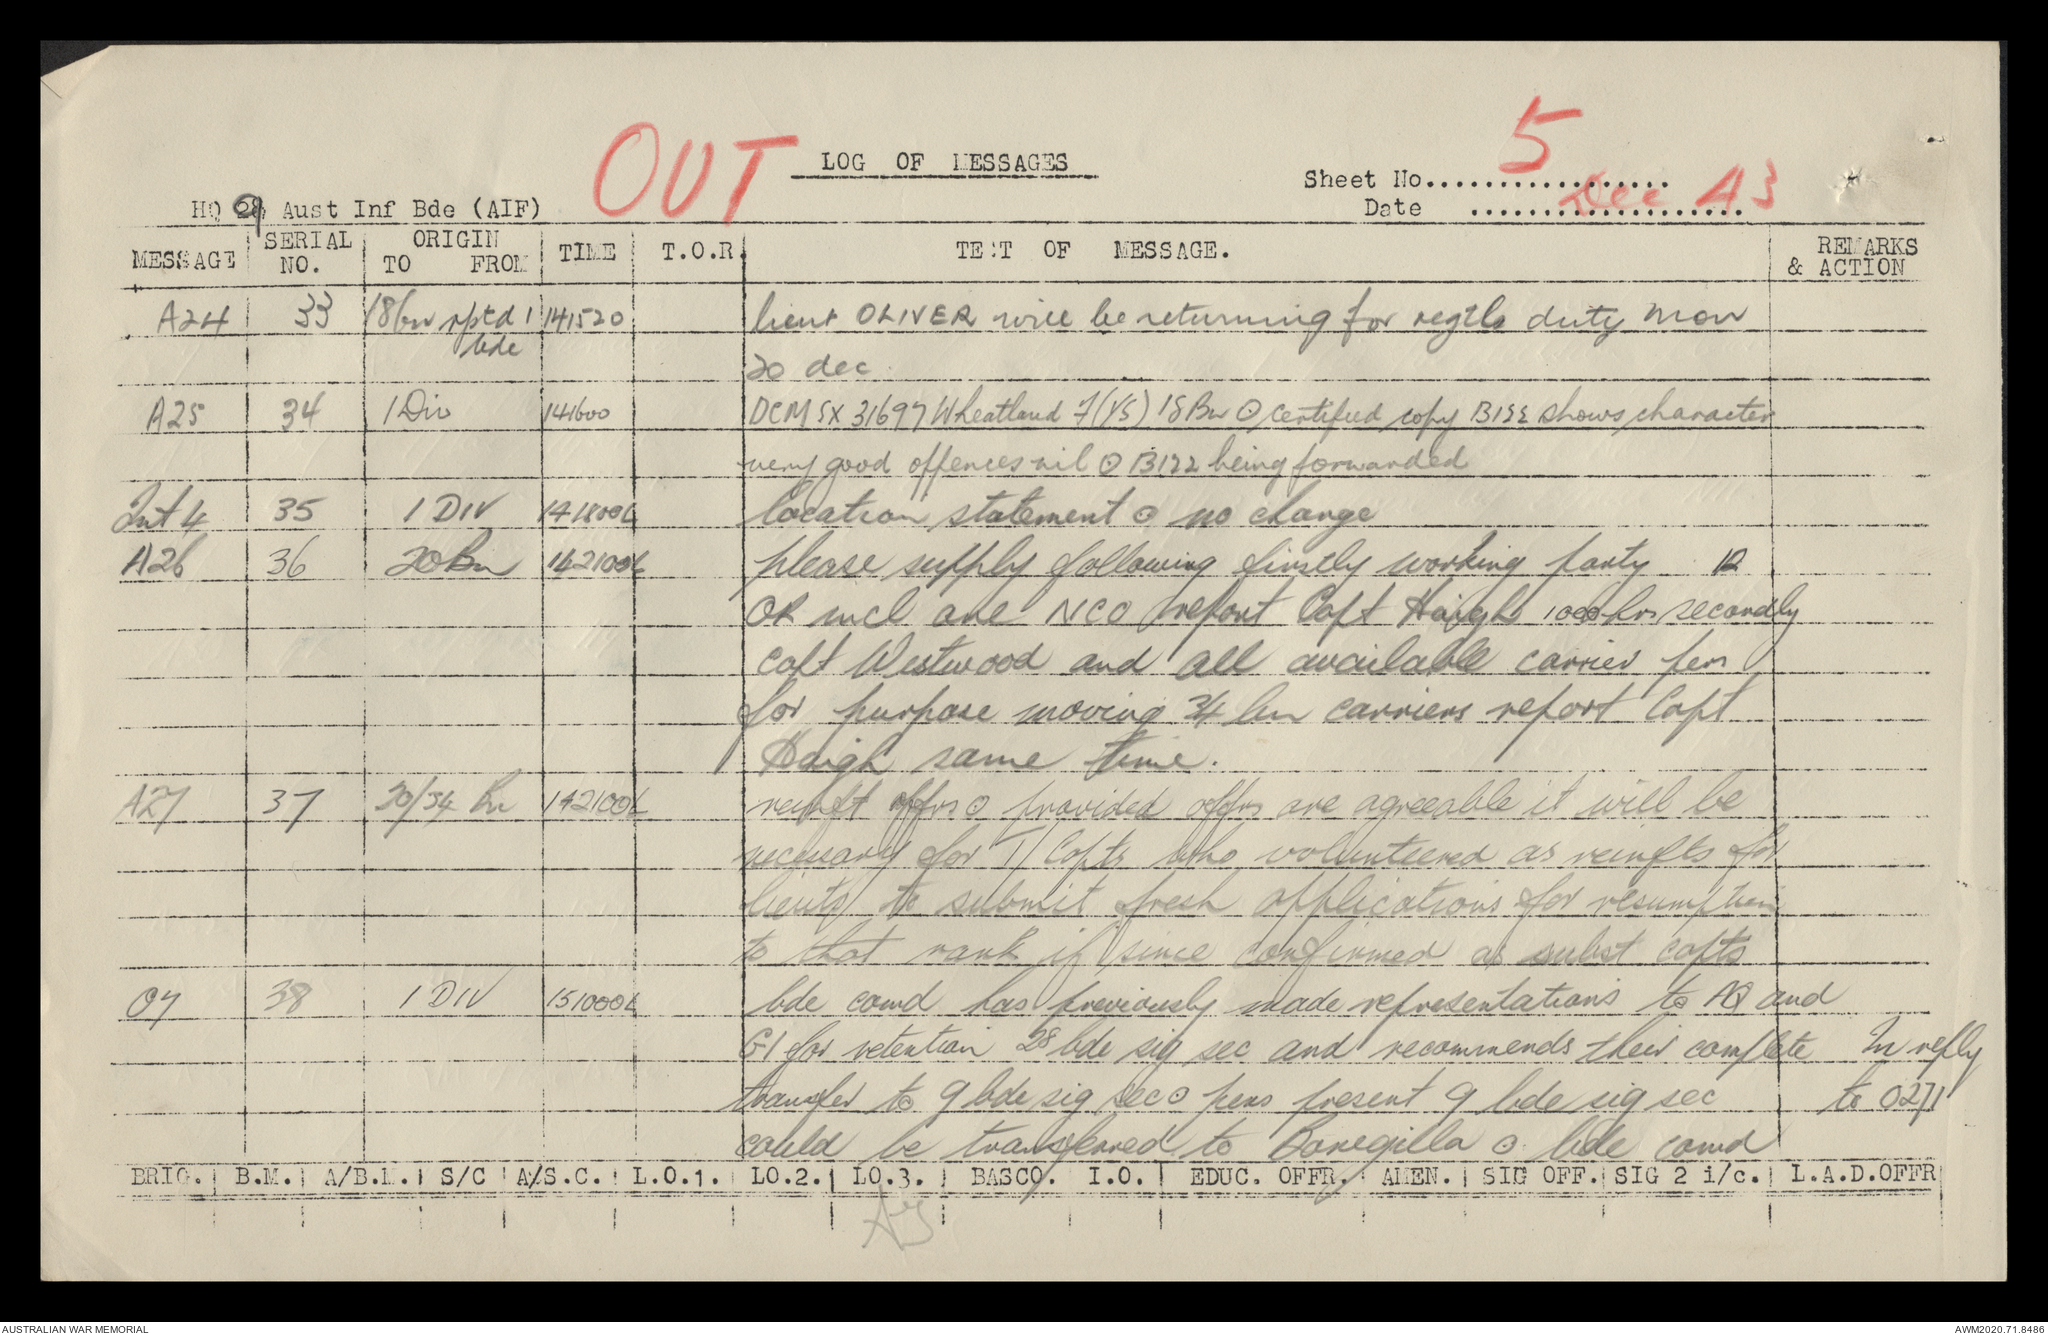 OUT
LOG OF MESSAGES
Sheet No.................. 5
Date ................... Dec 43
HQ 9 Aust Inf Bde (AIF)
MESSAGE SERIAL NO. ORIGIN TO FROM TIME T.O.R. TEXT OF MESSAGE. REMARKS & ACTION
A24 33 18bn rptd 1 141520 lieut OLIVER will be returning for regtl duty mon
bde 20 dec
A25 34 1 Div 141600 DCM SX 31697 Wheatland 18 Bn ⊙ certified copy B122 shows character
very good offences nil ⊙ B122 being forwarded
Int 4 35 1 DIV 141800L location statement ⊙ no change
A26 36 20 Bn 142100L please supply following firstly working party 12
OR incl one NCO report Capt Haigh 1000 hrs secondly
Capt Westwood and all available carrier pers
for purpose moving 34 bn carriers report Capt
Haigh same time.
A27 37 20/34 Bn 142100L reinft offrs ⊙ provided offrs are agreeable it will be
necessary for T/Capts who volunteered as reinfts for
lieuts to submit fresh applications for resumption
to that rank if since confirmed as subst capts
O7 38 1 DIV 151000L bde comd has previously made representations to AQ and
G1 for retention 28 bde sig sec and recommends their complete In reply
transfer to 9 bde sig sec ⊙ pers present 9 bde sig sec to O271
could be transferred to Bonegilla ⊙ bde comd
BRIG. B.M. A/B.M. S/C A/S.C. L.O.1. LO.2. LO.3. BASCO. I.O. EDUC. OFFR. AMEN. SIG OFF. SIG 2 i/c. L.A.D.OFFR
AUSTRALIAN WAR MEMORIAL AWM2020.71.8486